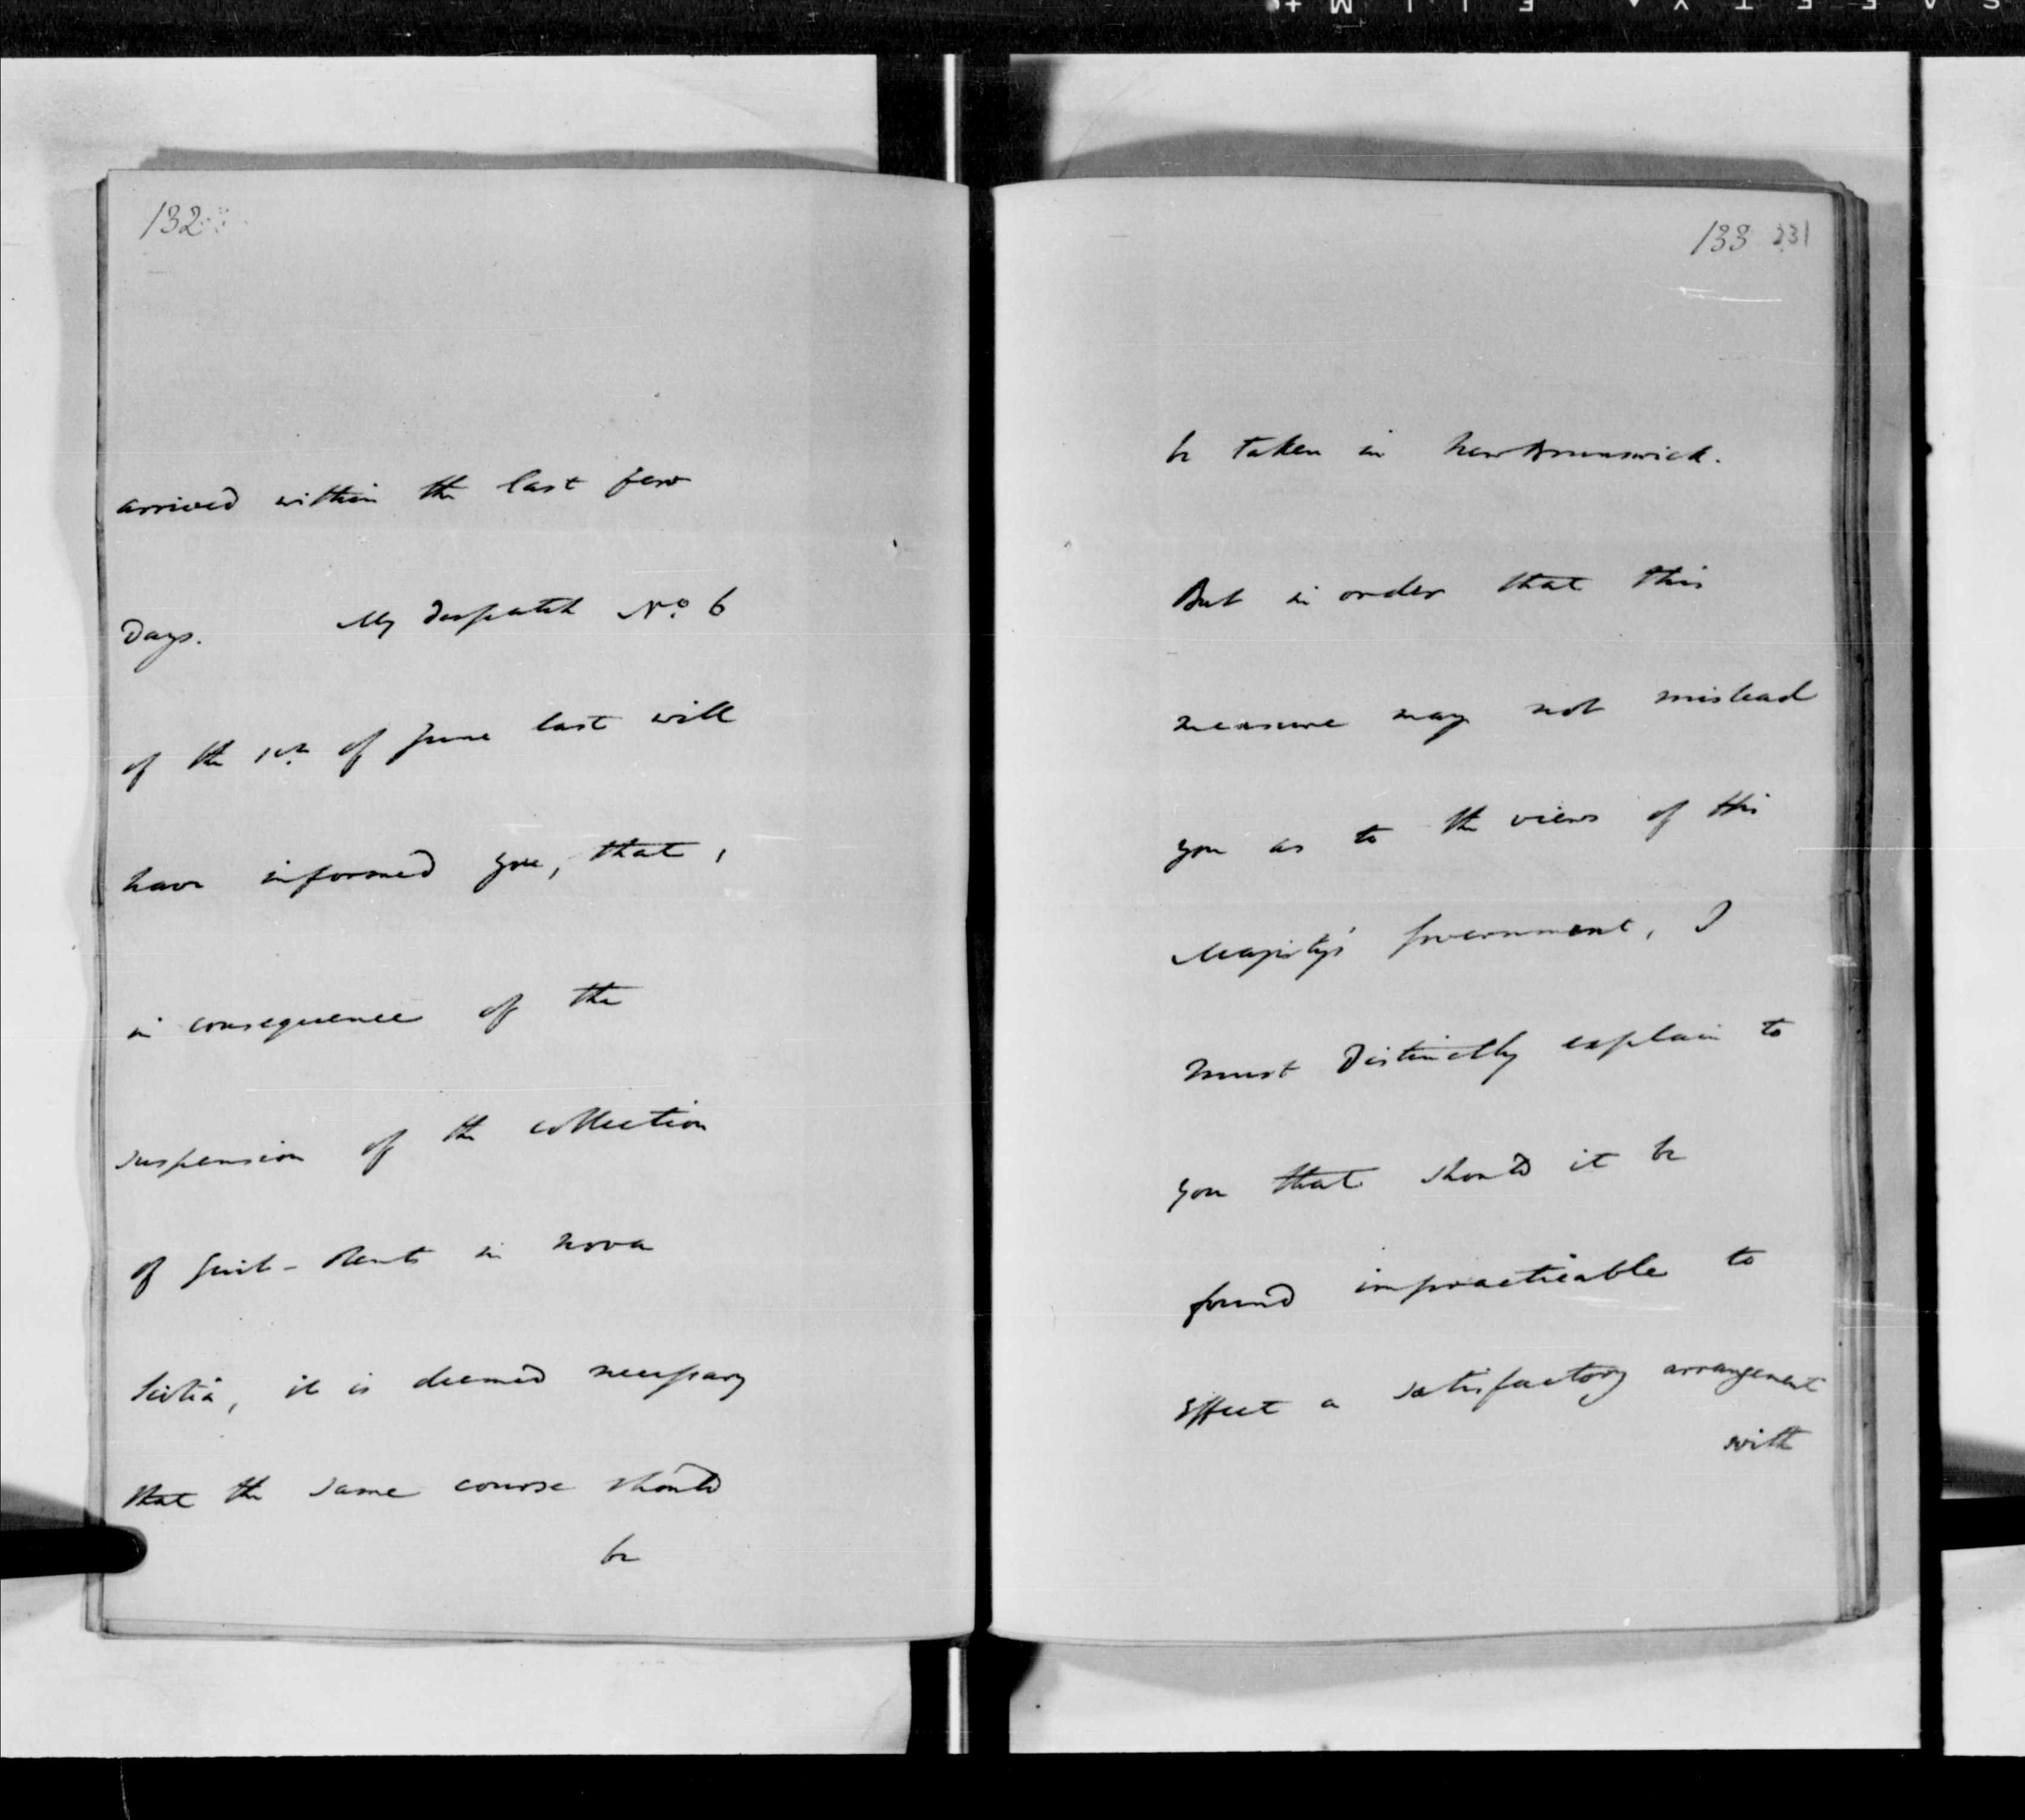 132
arrived within the last few
Days. My Despatch No. 6
of the 1st. of June last will
have informed you, that,
in consequence of the
suspension of the collection
of Quit-Rents in Nova
Scotia, it is deemed necessary
that the same course should
be
133 231
be taken in New Brunswick.
But in order that this
measure may not mislead
you as to the views of His
Majesty's Government, I
must Distinctly explain to
you that should it be
found impracticable to
effect a satisfactory arrangement
with